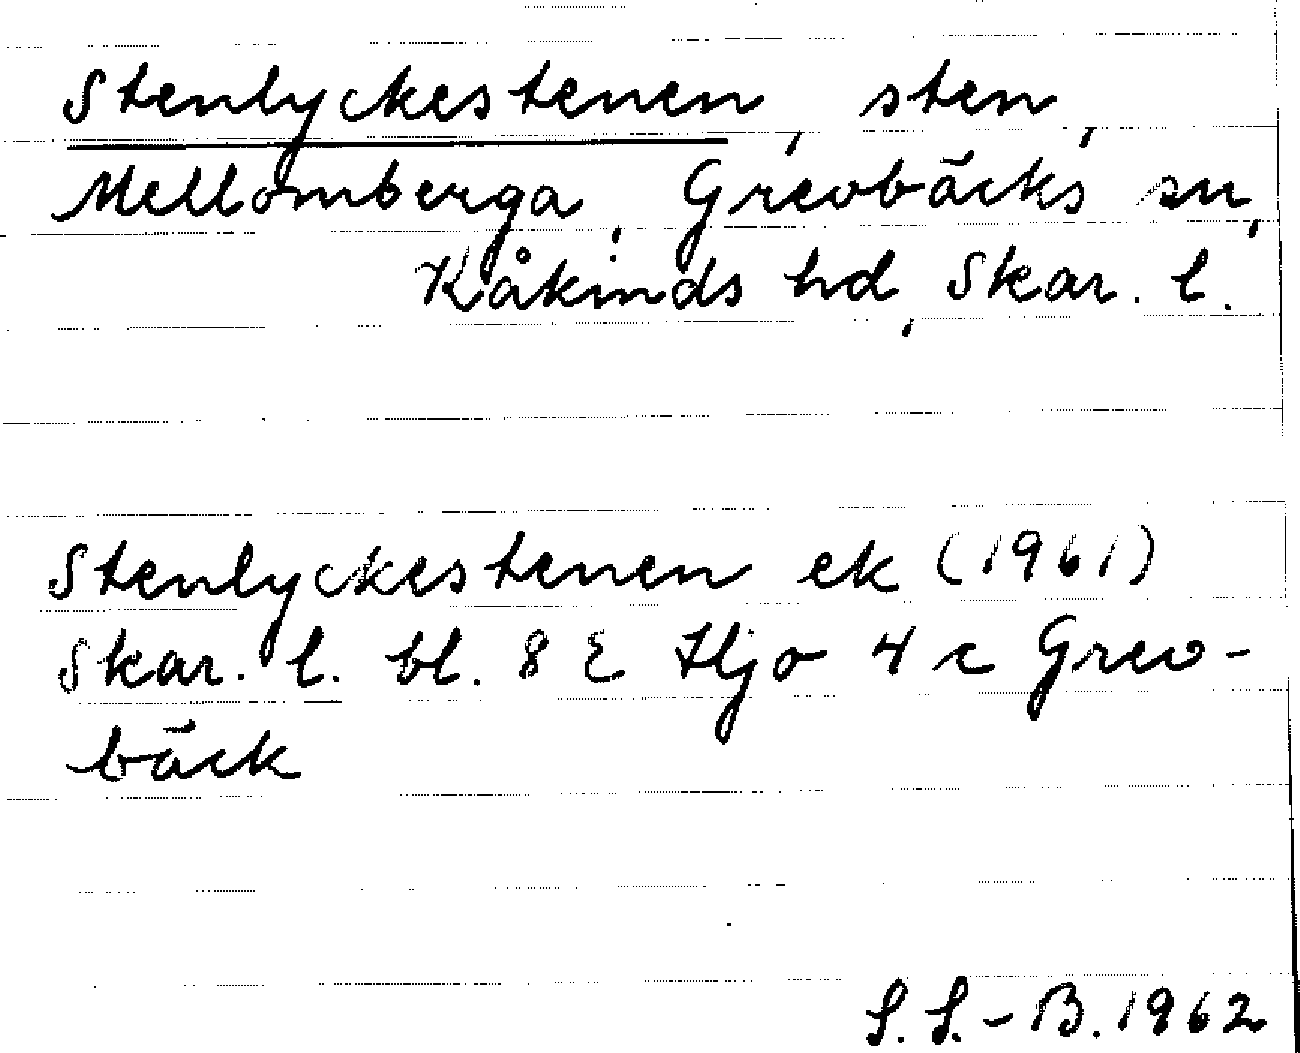 Stenlyckestenen, sten,
Mellomberga, Grevbäcks sn,
Kåkinds hd, Skar. l.
Stenlyckestenen ek (1961)
Skar. l. bl. 8 E Hjo 4 c Grev-
bäck
S. S.-B. 1962